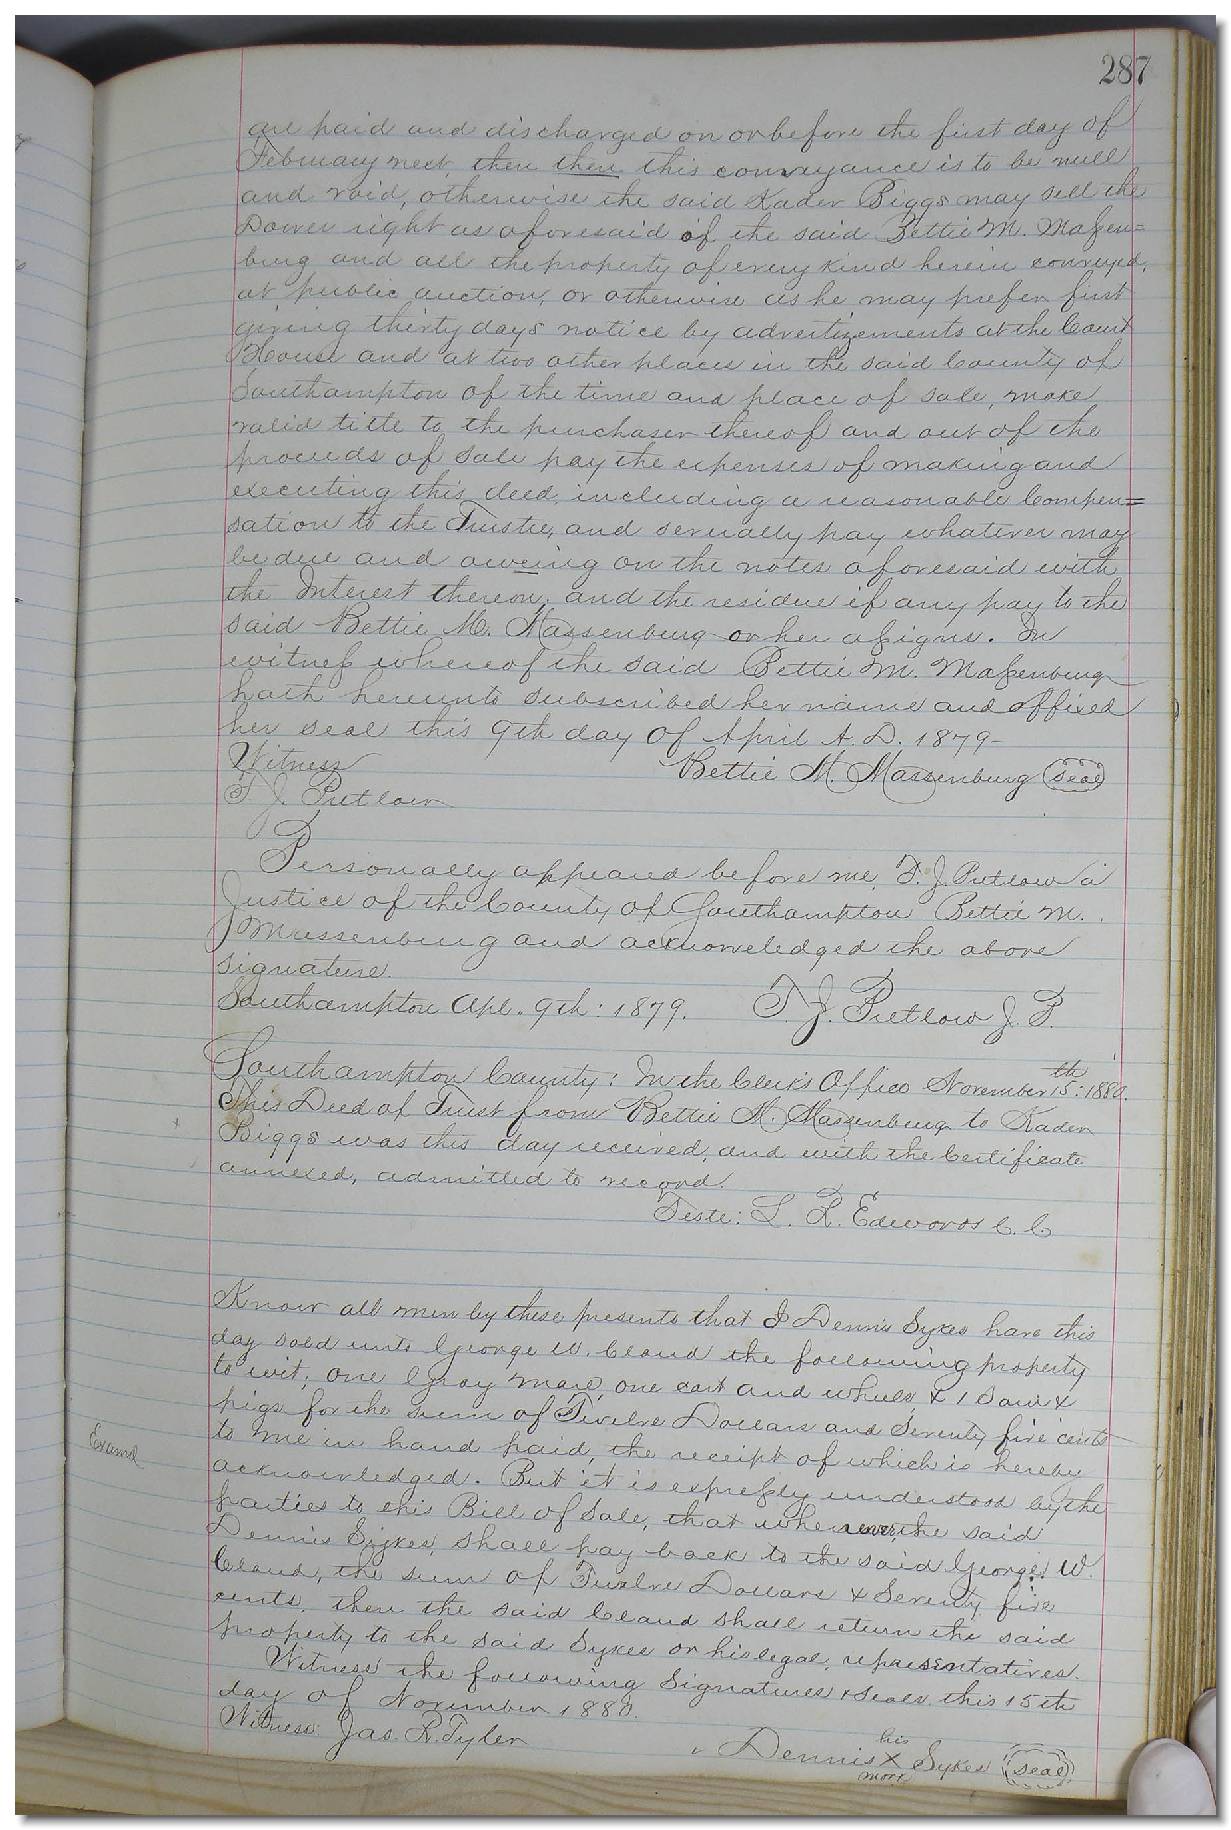 287
are paid and discharged on or before the first day of
February next, then then this conveyance is to be null
and void, otherwise the said Kader Biggs may sell the
Dower right as aforesaid of the said Bettie M. Massen=
burg and all the property of every kind herein conveyed,
at public auction, or otherwise as he may prefer first
giving thirty days notice by advertizements at the Court
House and at two other places in the said County of
Southampton of the time and place of sale, make
valid title to the purchaser thereof and out of the
proceeds of sale pay the expenses of making and
executing this deed, including a reasonable Compen=
sation to the Trustee, and serually pay whatever may
be due and oweing on the notes aforesaid with
the Interest thereon, and the residue if any pay to the
said Bettie M. Massenburg or her assigns. In
witness whereof the said Bettie M. Massenburg
hath hereunto subscribed her name and affixed
her seal this 9th day of April A. D. 1879-
Witness Bettie M. Massenburg (seal)
T. J. Pretlow
Personally appeared before me, T. J. Pretlow a
Justice of the County of Southampton Bettie M.
Massenburg and acknowledged the above
signature.
Southampton Apl. 9th: 1879. T. J. Pretlow J. P.
Southampton County: In the Clerk's Office November 15th: 1880.
This Deed of Trust from Bettie M. Massenburg to Kader
Biggs was this day received, and with the Certificate
annexed, admitted to record.
Teste: L. R. Edwards C. C
Know all men by these presents that I Dennis Sykes have this
day sold unto George W. Claud the following property
to wit; one Gray mare, one cart and wheels, & 1 Sow &
pigs for the sum of Twelve Dollars and Seventy five cents
to me in hand paid, the receipt of which is hereby
Examd
acknowledged. But it is expressly understood by the
parties to this Bill of Sale, that whensoever the said
Dennis Sykes, shall pay back to the said George W.
Claud, the sum of Twelve Dollars & Seventy five
cents, then the said Claud shall return the said
property to the said Sykes or his legal representatives.
Witness the following Signatures & Seals this 15th
day of November 1880.
Witness Jas. R. Tyler
his
Dennis X Sykes (seal)
mark